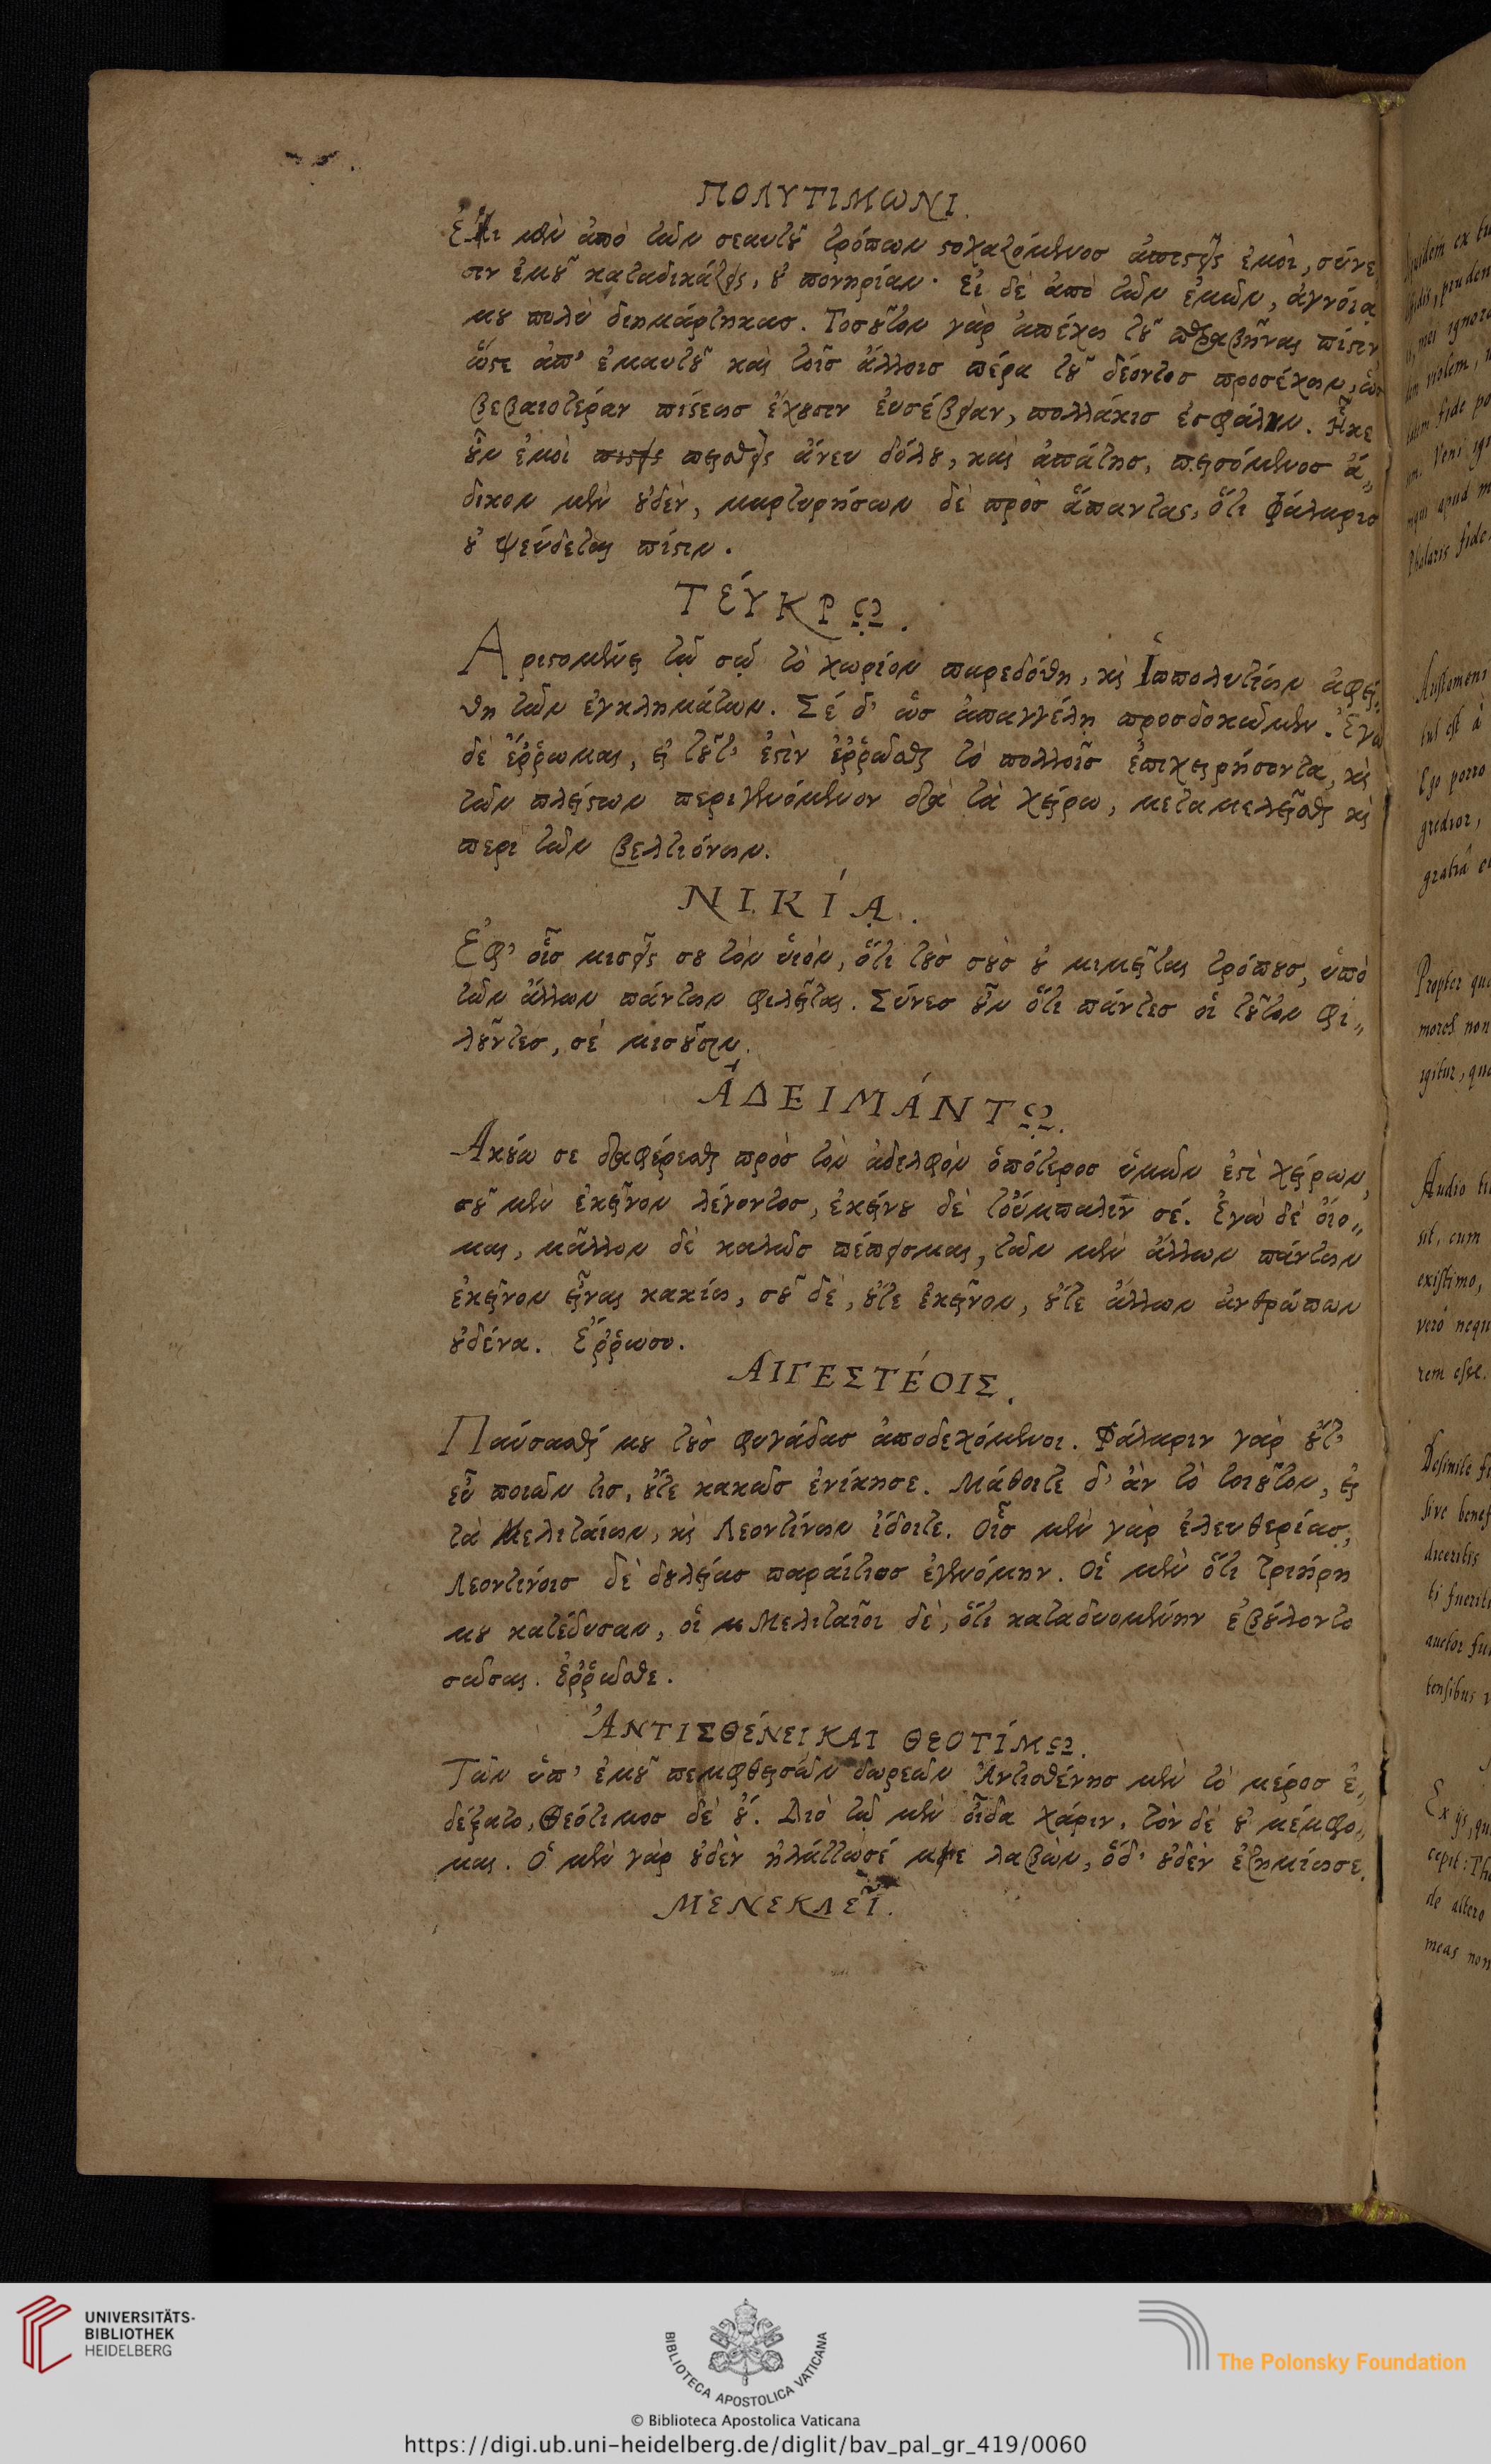 ΠΟΛΥΤΙΜΩΝΙ.
Εἰ μὲν ἀπὸ τῶν σεαυτοῦ τρόπων στοχαζόμενος ἀπιστεῖς ἐμοὶ, σύνε
σιν ἐμοῦ καταδικάζεις, οὐ πονηρίαν. Εἰ δὲ ἀπὸ τῶν ἐμῶν, ἀγνόια
μου πολὺ διημάρτηκας. Τοσοῦτον γὰρ ἀπέχω τοῦ παραβῆναι πίστιν
ὥστε ἀπ' ἐμαυτοῦ καὶ τοῖς ἄλλοις πέρα τοῦ δέοντος προσέχων, ὡς
βεβαιοτέραν πίστεως ἔχουσιν ἐυσέβειαν, πολλάκις ἐσφάλην. Ἧκε
οὖν ἐμοὶ πεισθεὶς ἄνευ δόλου, καὶ ἀπάτης, πεισόμενος ἄ„
δικον μὲν οὐδὲν, μαρτυρήσων δὲ πρὸς ἅπαντας, ὅτι Φάλαρις
οὐ ψεύδεται πίστιν.
ΤΈΥΚΡΩ.
Αριστομένει τῷ σῷ τὸ χωρίον παρεδόθη, καὶ Ἱππολυτίων ἀφεί„
θη τῶν ἐγκλημάτων. Σέ δ' ὡς ἀπαγγέλῃ προσδοκῶμεν. Ἐγὼ
δὲ ἔῤῥωμαι, εἰ τοῦτ' ἐστὶν ἐῤῥῶσθαι τὸ πολλοῖς ἐπιχειρήσοντα, καὶ
τῶν πλείστων περιγενόμενον διὰ τὰ χείρω, μεταμελεῖσθαι καὶ
περὶ τῶν βελτιόνων.
ΝΙΚΊΑ.
Εφ' οἷς μισεῖς σου τὸν ὑιὸν, ὅτι τοὺς σοὺς οὐ μιμεῖται τρόπους, ὑπὸ
τῶν ἄλλων πάντων φιλεῖται. Σύνες οὖν ὅτι πάντες οἱ τοῦτον φι„
λοῦντες, σέ μισοῦσιν.
ἈΔΕΙΜΆΝΤΩ.
Ακούω σε διαφέρεσθαι πρὸς τὸν ἀδελφὸν ὁπότερος ὑμῶν ἐστὶ χείρων,
σοῦ μὲν ἐκεῖνον λέγοντος, ἐκείνου δὲ τοὔμπαλιν σέ. Ἐγὼ δὲ οἴο„
μαι, μᾶλλον δὲ καλῶς πέπεισμαι, τῶν μὲν ἄλλων πάντων
ἐκεῖνον εἶναι κακίω, σοῦ δὲ, οὔτε ἐκεῖνον, οὔτε ἄλλων ἀνθρώπων
οὐδένα. Ἔῤῥωσο.
ΑΙΓΕΣΤΈΟΙΣ.
Παύσασθέ μου τοὺς φυγάδας ἀποδεχόμενοι. Φάλαριν γὰρ οὔτ'
εὖ ποιῶν τις, οὔτε κακῶς ἐνίκησε. Μάθοιτε δ' ἂν τὸ τοιοῦτον, εἰ
τὰ Μελιταίων, καὶ Λεοντίνων ἴδοιτε. Οἷς μὲν γὰρ ἐλευθερίας,
Λεοντίνοις δὲ δουλείας παράιτιος ἐγενόμην. Οἱ μὲν ὅτι τριήρη
μου κατέδυσαν, οἱ Μελιταῖοι δὲ, ὅτι καταδυομένην ἐβούλοντο
σῶσαι. ἐῤῥῶσθε.
ἈΝΤΙΣΘΈΝΕΙ ΚΑΙ ΘΕΟΤΊΜΩ.
Τῶν ὑπ' ἐμοῦ πεμφθεισῶν δωρεῶν Ἀντισθένης μὲν τὸ μέρος ἐ„
δέξατο, Θεότιμος δὲ οὔ. Διὸ τῷ μὲν οἶδα χάριν, τὸν δὲ οὐ μέμφο„
μαι. Ὁ μὲν γὰρ οὐδὲν ἠλάττωσέ με λαβὼν, ὅδ' οὐδὲν ἐζημίωσε.
ΜΕΝΕΚΛΕῖ.
UNIVERSITÄTS-
BIBLIOTHEK
HEIDELBERG
BIBLIOTECA APOSTOLICA VATICANA
© Biblioteca Apostolica Vaticana
The Polonsky Foundation
https://digi.ub.uni-heidelberg.de/diglit/bav_pal_gr_419/0060